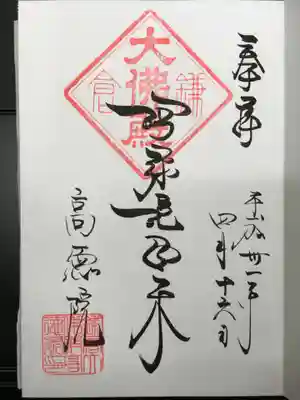 奉拝
平成卅一年
四月十六日
鎌倉
大佛殿
阿弥陀如来
高徳院